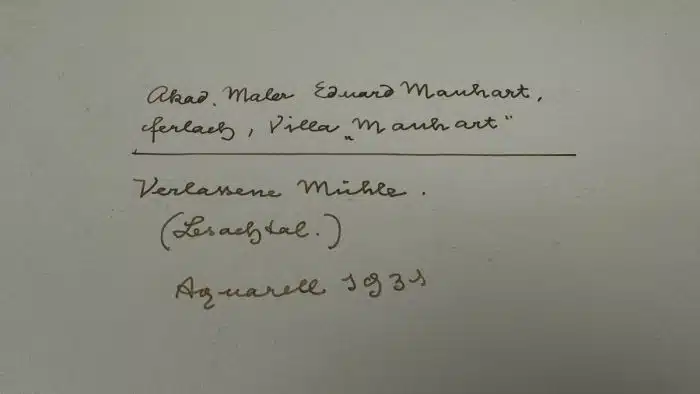 Akad. Maler Eduard Manhart,
Ferlach, Villa „Manhart"
Verlassene Mühle.
(Lesachtal.)
Aquarell 1931